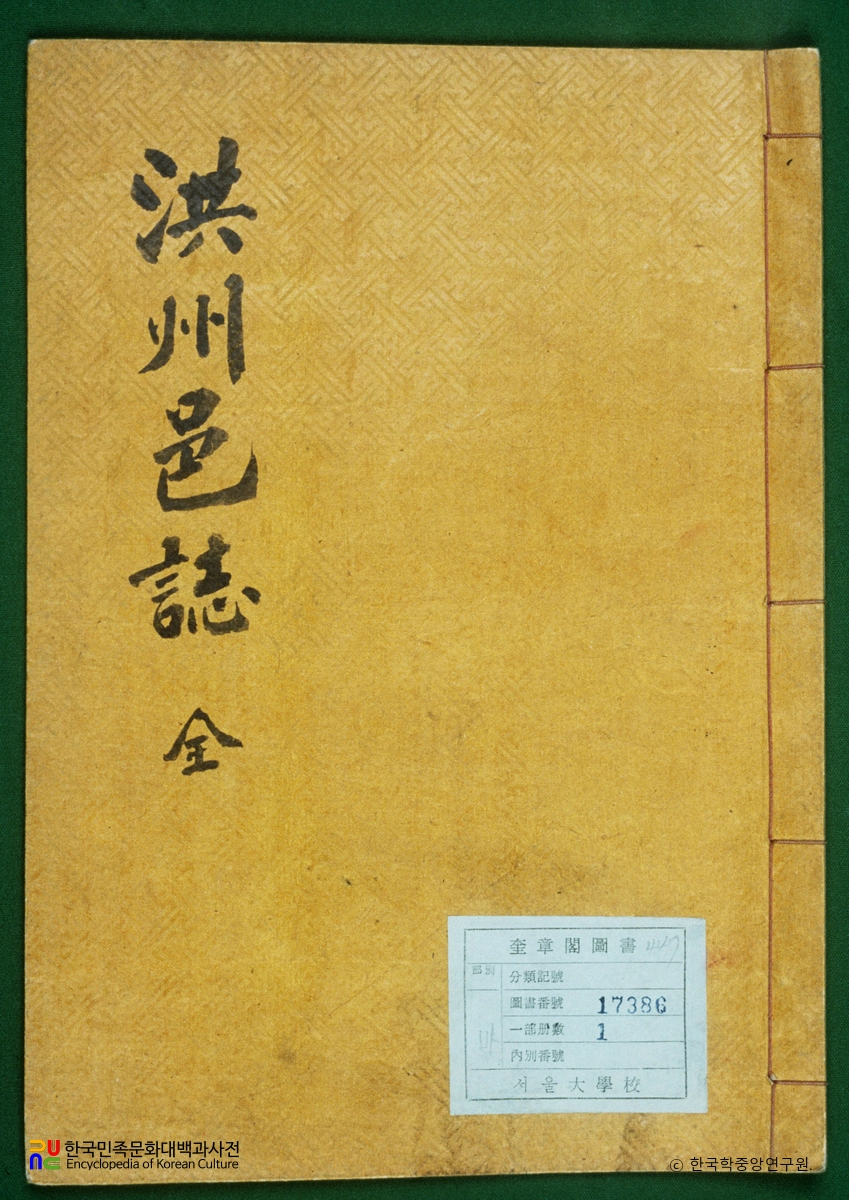 洪州邑誌 全
奎章閣圖書
部別
分類記號
圖書番號 17386
一部册數 1
內別番號
서울大學校
한국민족문화대백과사전
Encyclopedia of Korean Culture
© 한국학중앙연구원